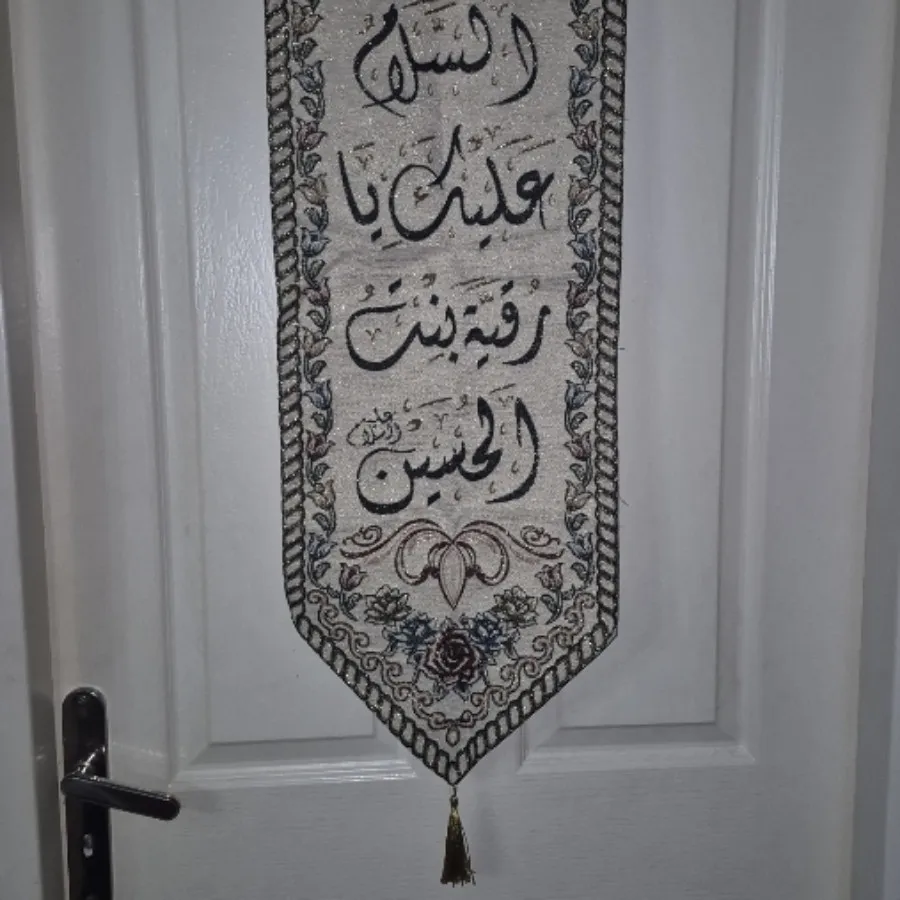 السَّلَامُ
عَلَيْكِ يَا
رُقَيَّة بِنْتُ
الْحُسَيْن عليه السلام